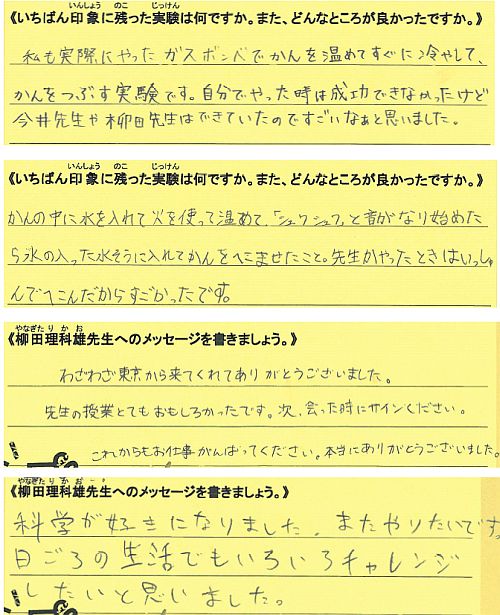 《いちばん印象に残った実験は何ですか。また、どんなところが良かったですか。》
私も実際にやったガスボンベでかんを温めてすぐに冷やして、
かんをつぶす実験です。自分でやった時は成功できなかったけど
今井先生や柳田先生はできていたのですごいなぁと思いました。
《いちばん印象に残った実験は何ですか。また、どんなところが良かったですか。》
かんの中に水を入れて火を使って温めて、「シュワシュワ」と音がなり始めた
ら氷の入った水そうに入れてかんをへこませたこと。先生がやったときはいっしゅ
んでへこんだからすごかったです。
《柳田理科雄先生へのメッセージを書きましょう。》
わざわざ東京から来てくれてありがとうございました。
先生の授業とてもおもしろかったです。次、会った時にサインください。
これからもお仕事がんばってください。本当にありがとうございました。
《柳田理科雄先生へのメッセージを書きましょう。》
科学が好きになりました。またやりたいです。
日ごろの生活でもいろいろチャレンジ
したいと思いました。